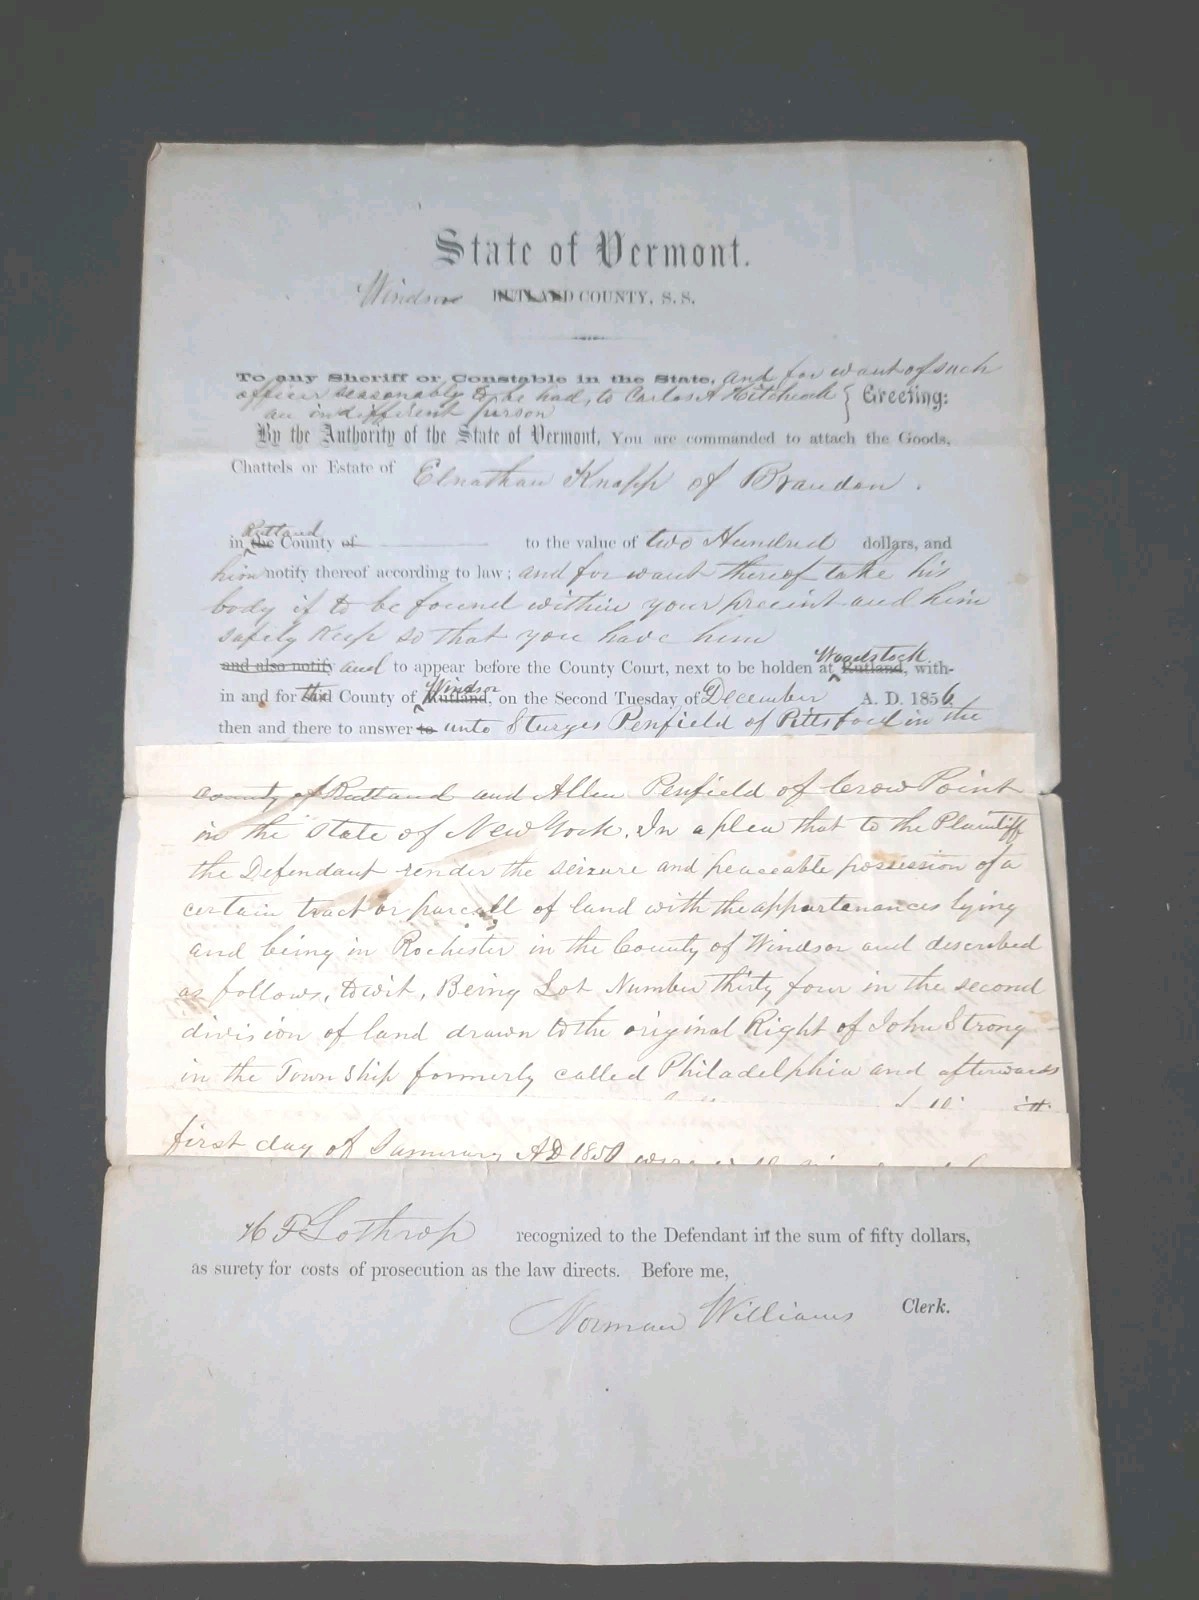 State of Vermont.
Windsor RUTLAND COUNTY, S. S.
To any Sheriff or Constable in the State, and for want of such
officer reasonably to be had, to Carlos A Hitchcock } Greeting:
an indifferent person
By the Authority of the State of Vermont, You are commanded to attach the Goods,
Chattels or Estate of Elnathan Knapp of Brandon.
Rutland
in the County of to the value of two Hundred dollars, and
him notify thereof according to law; and for want thereof take his
body if to be found within your precint and him
safely keep so that you have him
Woodstock
and also notify and to appear before the County Court, next to be holden at Rutland, with-
Windsor
in and for the County of Rutland, on the Second Tuesday of December A. D. 1856
then and there to answer to unto Sturges Penfield of Pittsford in the
County of Rutland and Allen Penfield of Crow Point
in the State of New York. In a plea that to the Plaintiff
the Defendant render the seizure and peaceable possession of a
certain tract or parcell of land with the appurtenances lying
and being in Rochester in the County of Windsor and described
as follows, towit, Being Lot Number thirty four in the second
division of land drawn to the original Right of John Strong
in the Town Ship formerly called Philadelphia and afterwards
first day of January AD 1850
H F Lothrop recognized to the Defendant in the sum of fifty dollars,
as surety for costs of prosecution as the law directs. Before me,
Norman Williams Clerk.